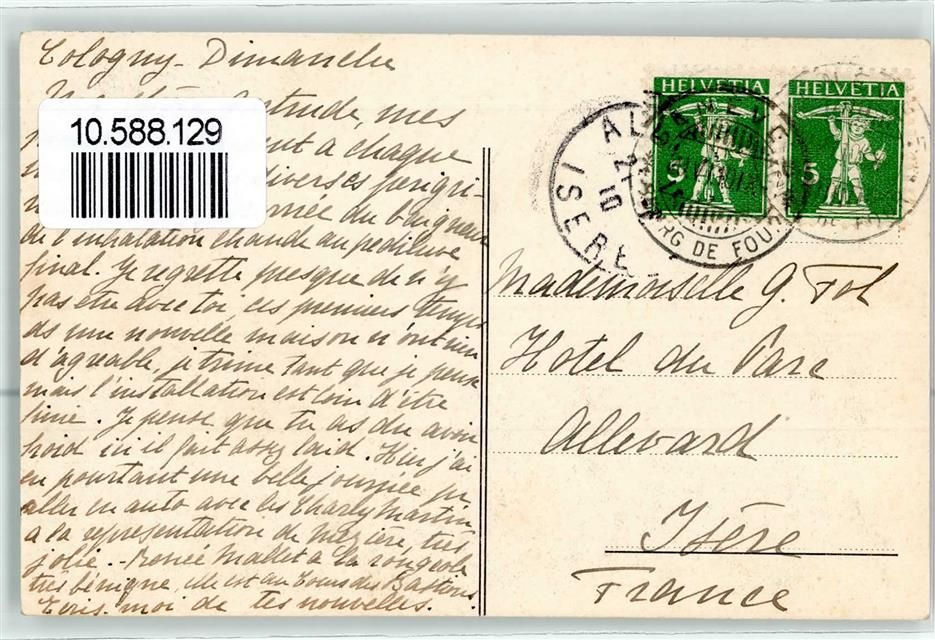 Cologny - Dimanche
mes
10.588.129
à chaque
diverses pérégri-
du baigneur
de l'inhalation chaude au pédiluve
final. Je regrette presque de n'y
pas être avec toi, ces premiers temps
ds une nouvelle maison n'ont rien
d'agréable, je trime tant que je peux
mais l'installation est loin d'être
finie. Je pense que tu as du avoir
froid ici il fait assez laid. Hier j'ai
eu pourtant une belle journée pr
aller en auto avec les Charly Martin
a la représentation de Mézière, très
jolie. - Renée Mallet a la rougeole
très bénigne, elle est au Tour des Bastions
Ecris-moi de tes nouvelles.
HELVETIA HELVETIA
5 5
ISERE
RG DE FOU
Mademoiselle G. Fol
Hotel du Parc
Allevard
Isère
France